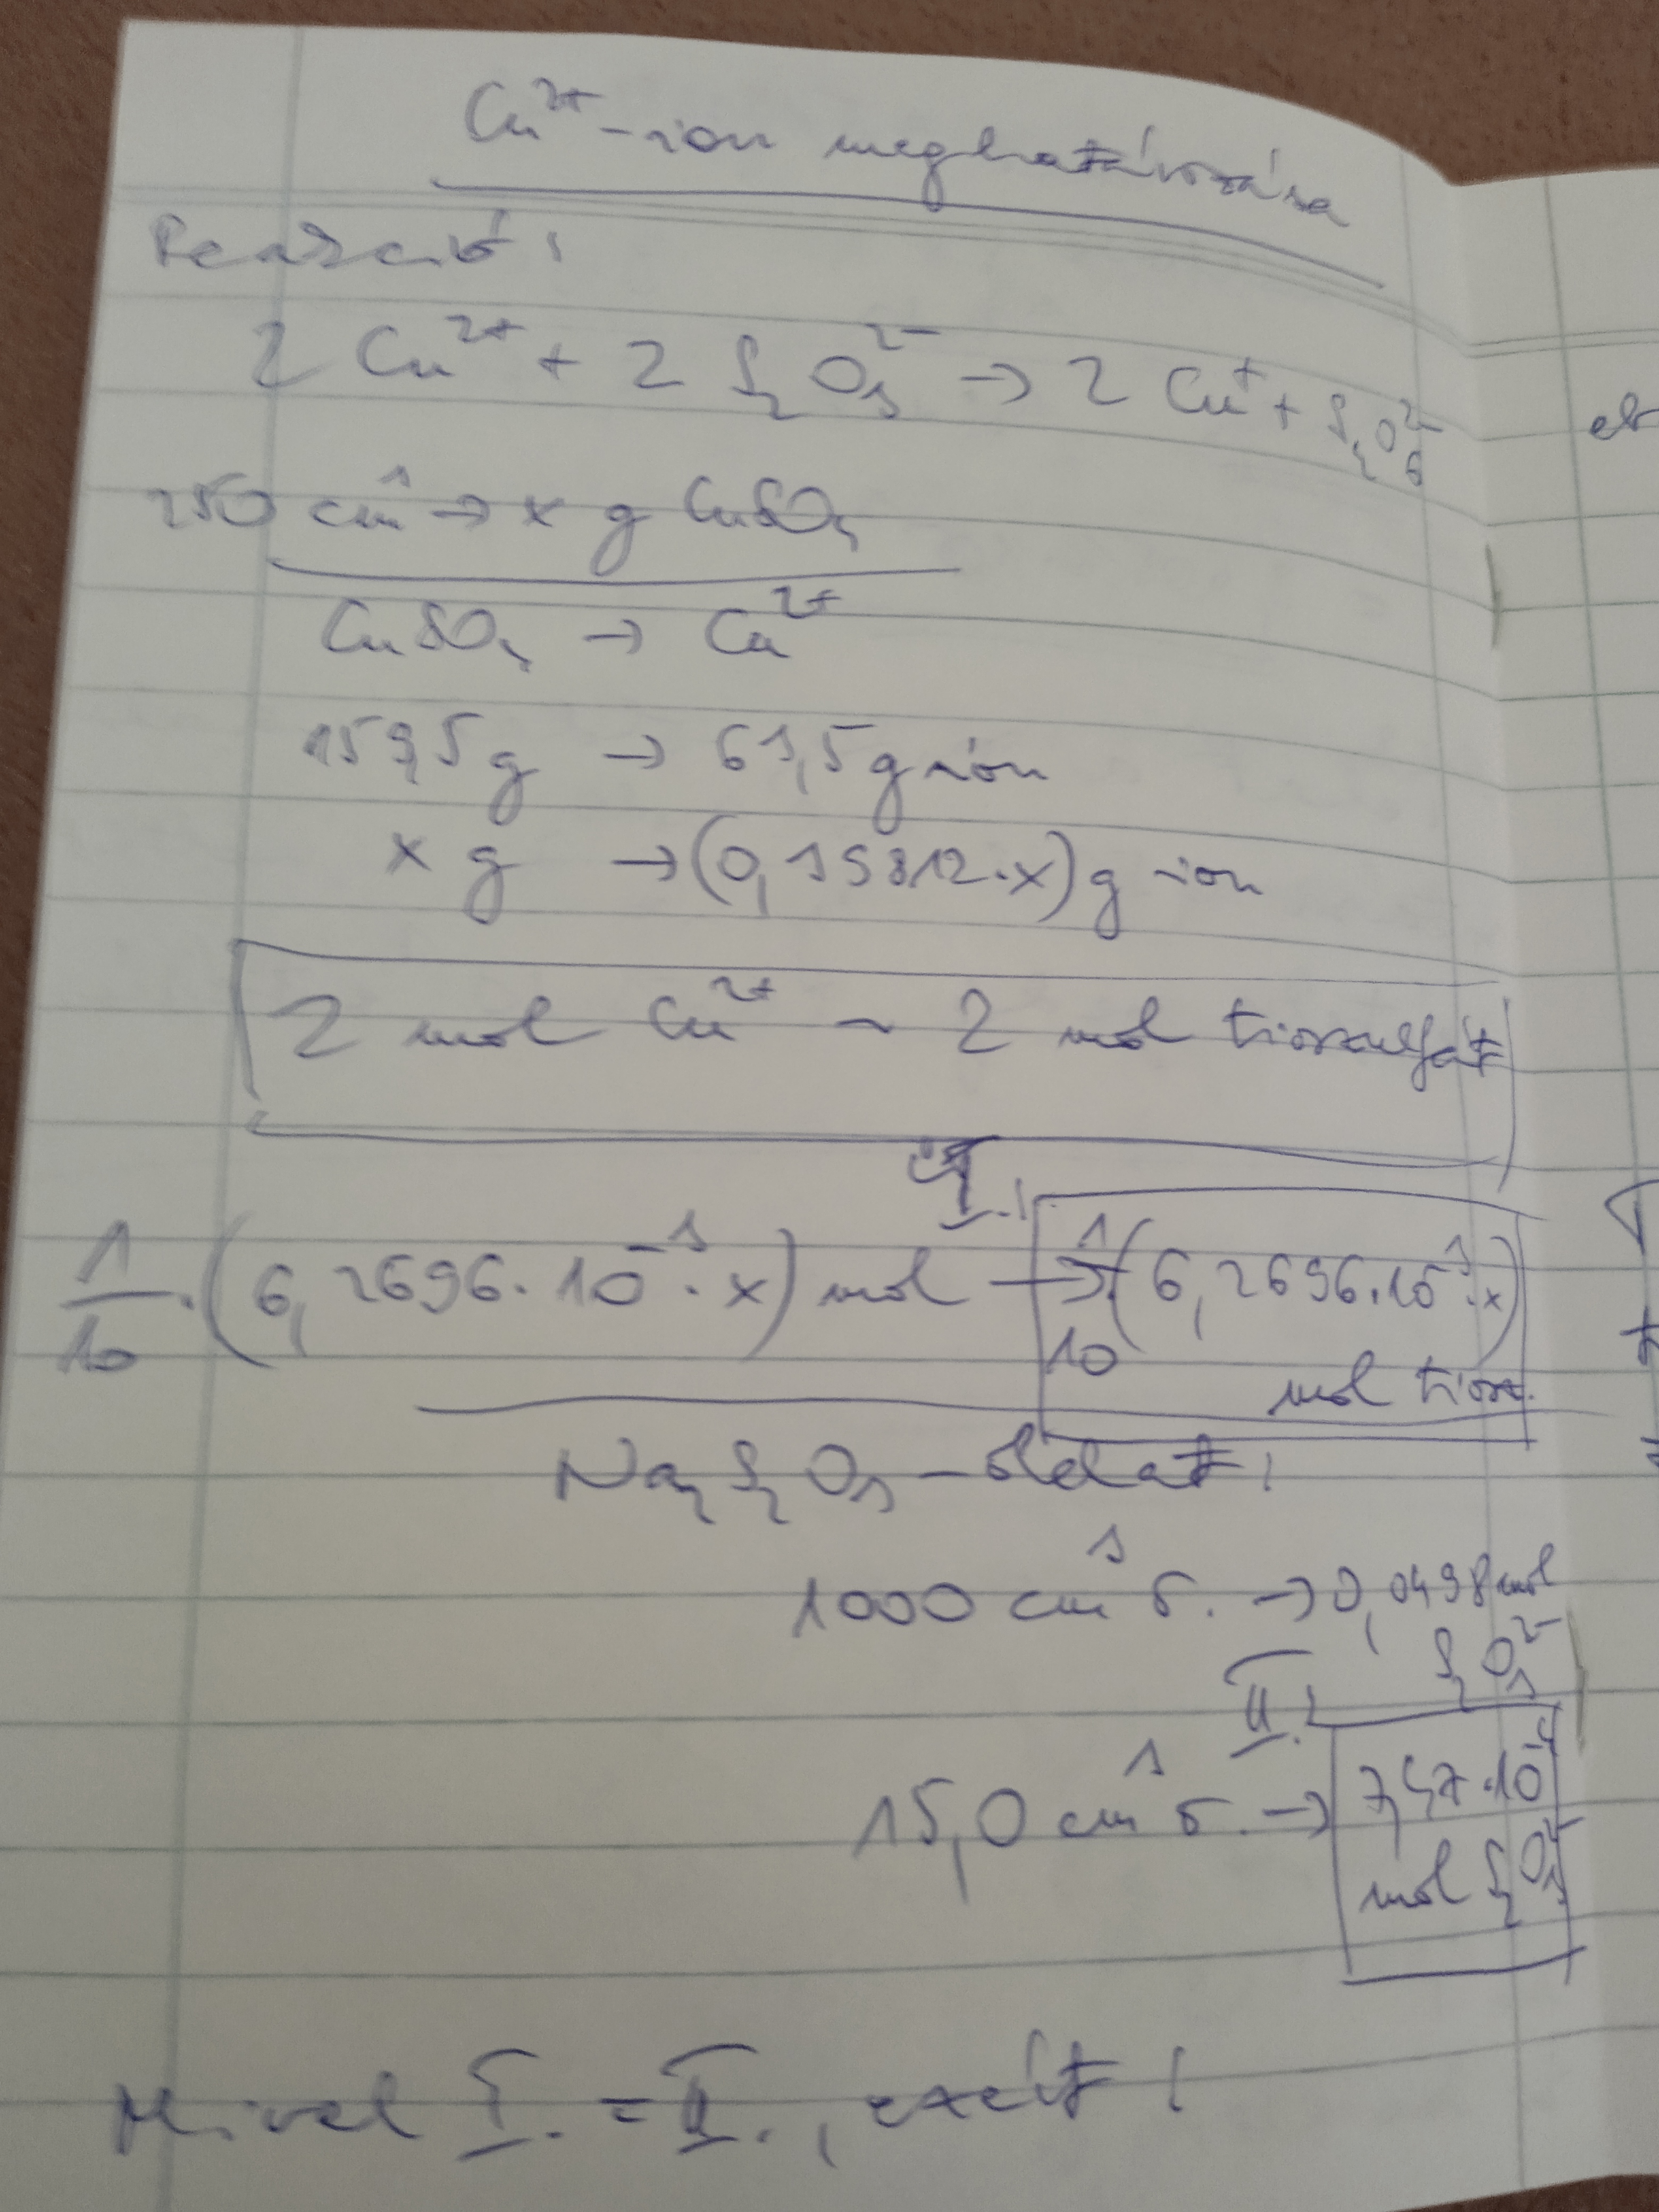 Cu²⁺-ion meghatározása
Reakció:
2 Cu²⁺ + 2 S₂O₃²⁻ → 2 Cu⁺ + S₄O₆²⁻
250 cm³ → x g CuSO₄
CuSO₄ → Cu²⁺
159,5 g → 63,5 g ion
x g → (0,39812·x) g ion
2 mol Cu²⁺ ~ 2 mol tioszulfát
I.
1/10 · (6,2696·10⁻³·x) mol → 1/10 (6,2696·10⁻³·x)
mol tiosz.
Na₂S₂O₃-oldat:
1000 cm³ o. → 0,0498 mol
S₂O₃²⁻
II.
15,0 cm³ o. → 7,47·10⁻⁴
mol S₂O₃²⁻
Mivel I. = II., ezért: